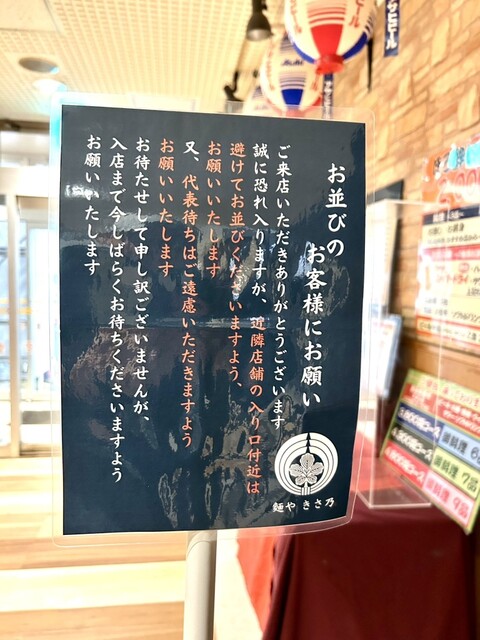 お並びの
お客様にお願い
ご来店いただきありがとうございます
誠に恐れ入りますが、近隣店舗の入り口付近は
避けてお並びくださいますよう、
お願いいたします
又、代表待ちはご遠慮いただきますよう
お願いいたします
お待たせして申し訳ございませんが、
入店まで今しばらくお待ちくださいますよう
お願いいたします
麺や きさ乃
Asahi
アサヒビール